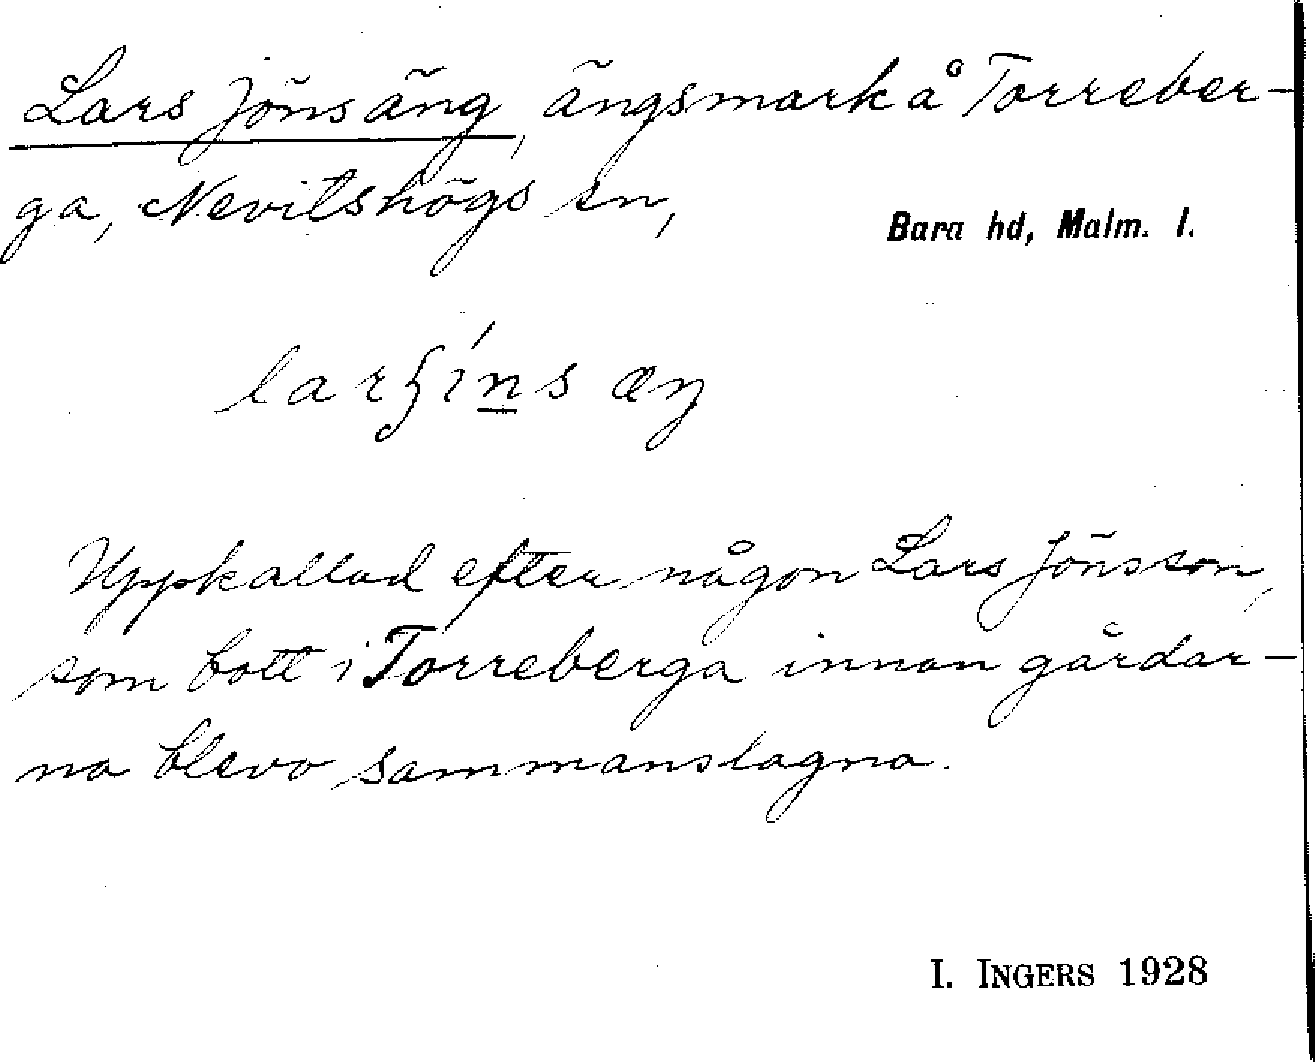 Lars Jöns äng, ängsmark å Torreber-
ga, Nevitshögs sn,
Bara hd, Malm. l.
Uppkallad efter någon Lars Jönsson,
som bott i Torreberga innan gårdar-
na blevo sammanslagna.
I. INGERS 1928